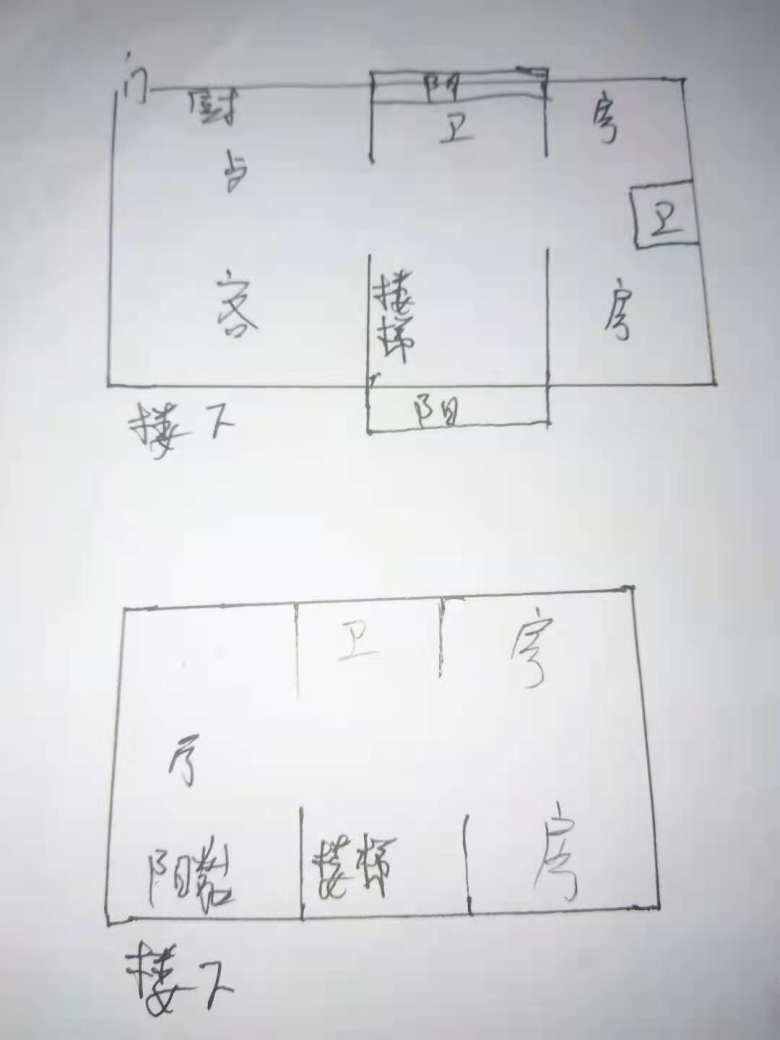 门
厨
阳
卫
房
卫
客
楼
梯
房
阳
楼下
卫
房
厅
阳
楼梯
房
楼下